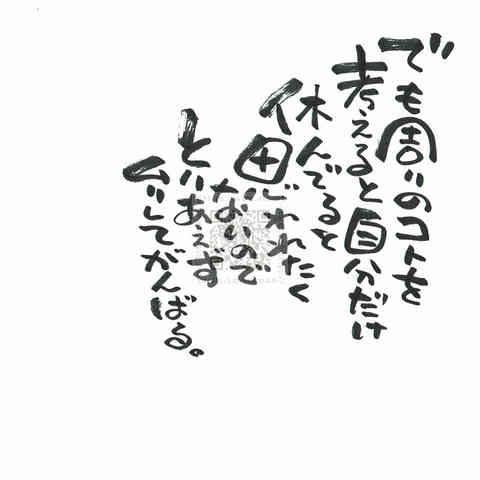 でも周りのコトを
考えると自分だけ
休んでると
思われたく
ないので
とりあえず
ムリしてがんばる。